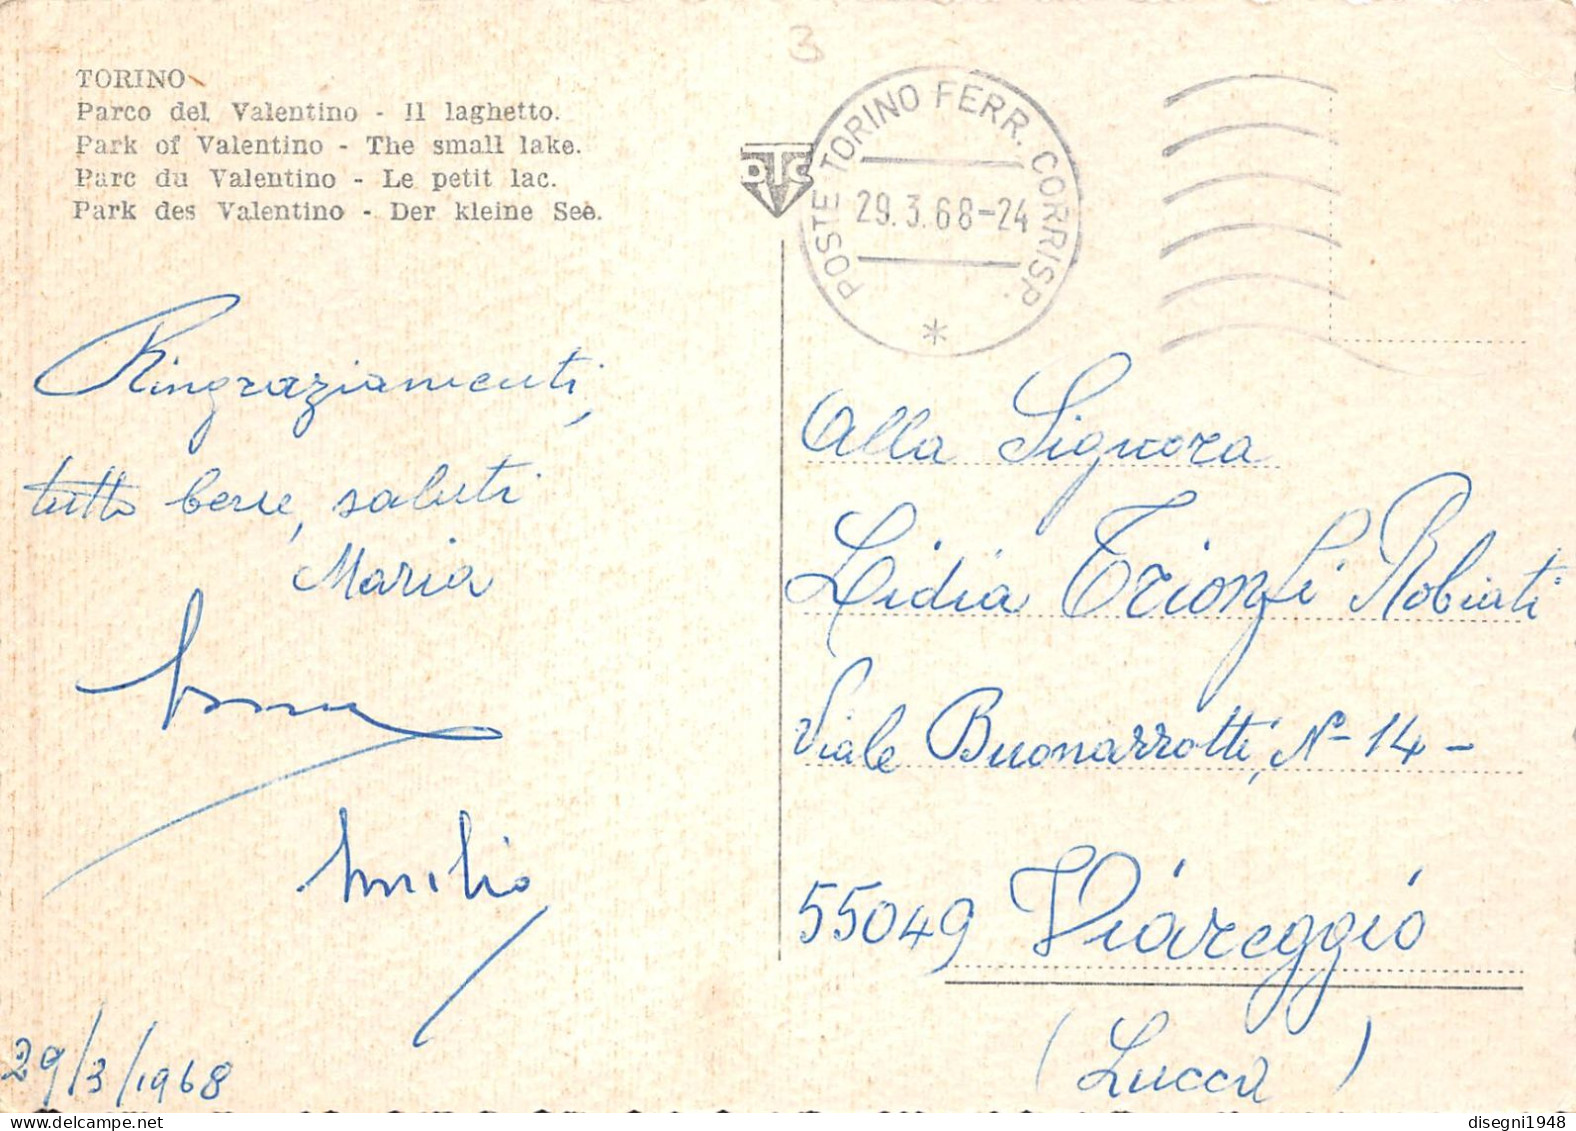 3
TORINO
Parco del Valentino - Il laghetto.
Park of Valentino - The small lake.
Parc du Valentino - Le petit lac.
Park des Valentino - Der kleine See.
DTC
POSTE TORINO FERR. CORRISP.
29.3.68-24
*
Ringraziamenti,
tutto bene, saluti
Maria
Emilio
29/3/1968
Alla Signora
Lidia Trionfi Robiati
Viale Buonarrotti, N° 14-
55049 Viareggio
(Lucca)
disegni1948